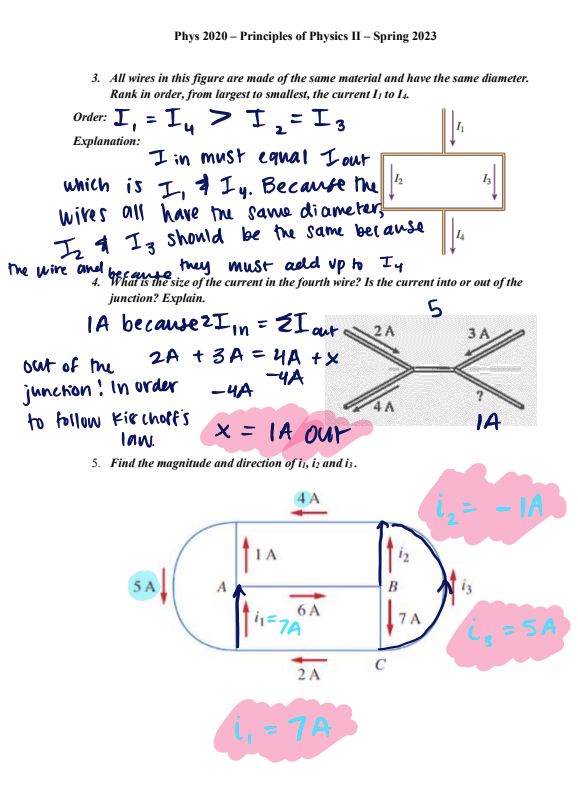 Phys 2020 – Principles of Physics II – Spring 2023
3. All wires in this figure are made of the same material and have the same diameter.
Rank in order, from largest to smallest, the current I₁ to I₄.
Order: I₁ = I₄ > I₂ = I₃
Explanation:
I in must equal I out
which is I₁ & I₄. Because the
wires all have the same diameter,
I₂ & I₃ should be the same because
the wire and because they must add up to I₄
I₁
I₂
I₃
I₄
4. What is the size of the current in the fourth wire? Is the current into or out of the
junction? Explain.
1A because ΣI in = ΣI out
2A + 3A = 4A + x
-4A -4A
out of the
junction! In order
to follow Kirchoff's
law.
x = 1A out
5
2 A
3 A
4 A
?
1A
5. Find the magnitude and direction of i₁, i₂ and i₃.
4 A
i₂ = -1A
1 A
i₂
5 A
A
B
i₃
6 A
i₁ = 7A
7 A
i₃ = 5A
2 A
C
i₁ = 7A